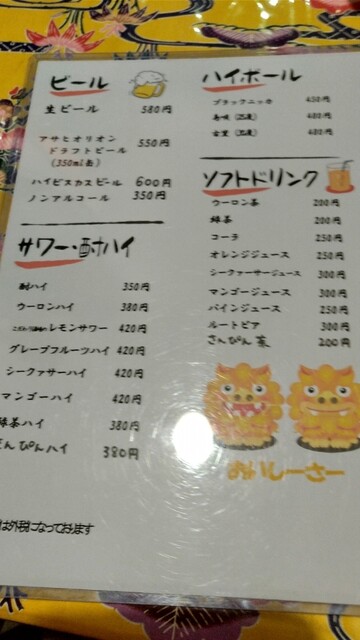 ビール
生ビール 580円
アサヒオリオン
ドラフトビール 550円
(350ml缶)
ハイビスカスビール 600円
ノンアルコール 350円
サワー・酎ハイ
酎ハイ 350円
ウーロンハイ 380円
レモンサワー 420円
グレープフルーツハイ 420円
シークァサーハイ 420円
マンゴーハイ 420円
緑茶ハイ 380円
さんぴんハイ 380円
は外税になっております
ハイボール
ブラックニッカ 430円
480円
480円
ソフトドリンク
ウーロン茶 200円
緑茶 200円
コーラ 250円
オレンジジュース 250円
シークァーサージュース 300円
マンゴージュース 300円
パインジュース 250円
ルートビア 300円
さんぴん茶 200円
おいしーさー